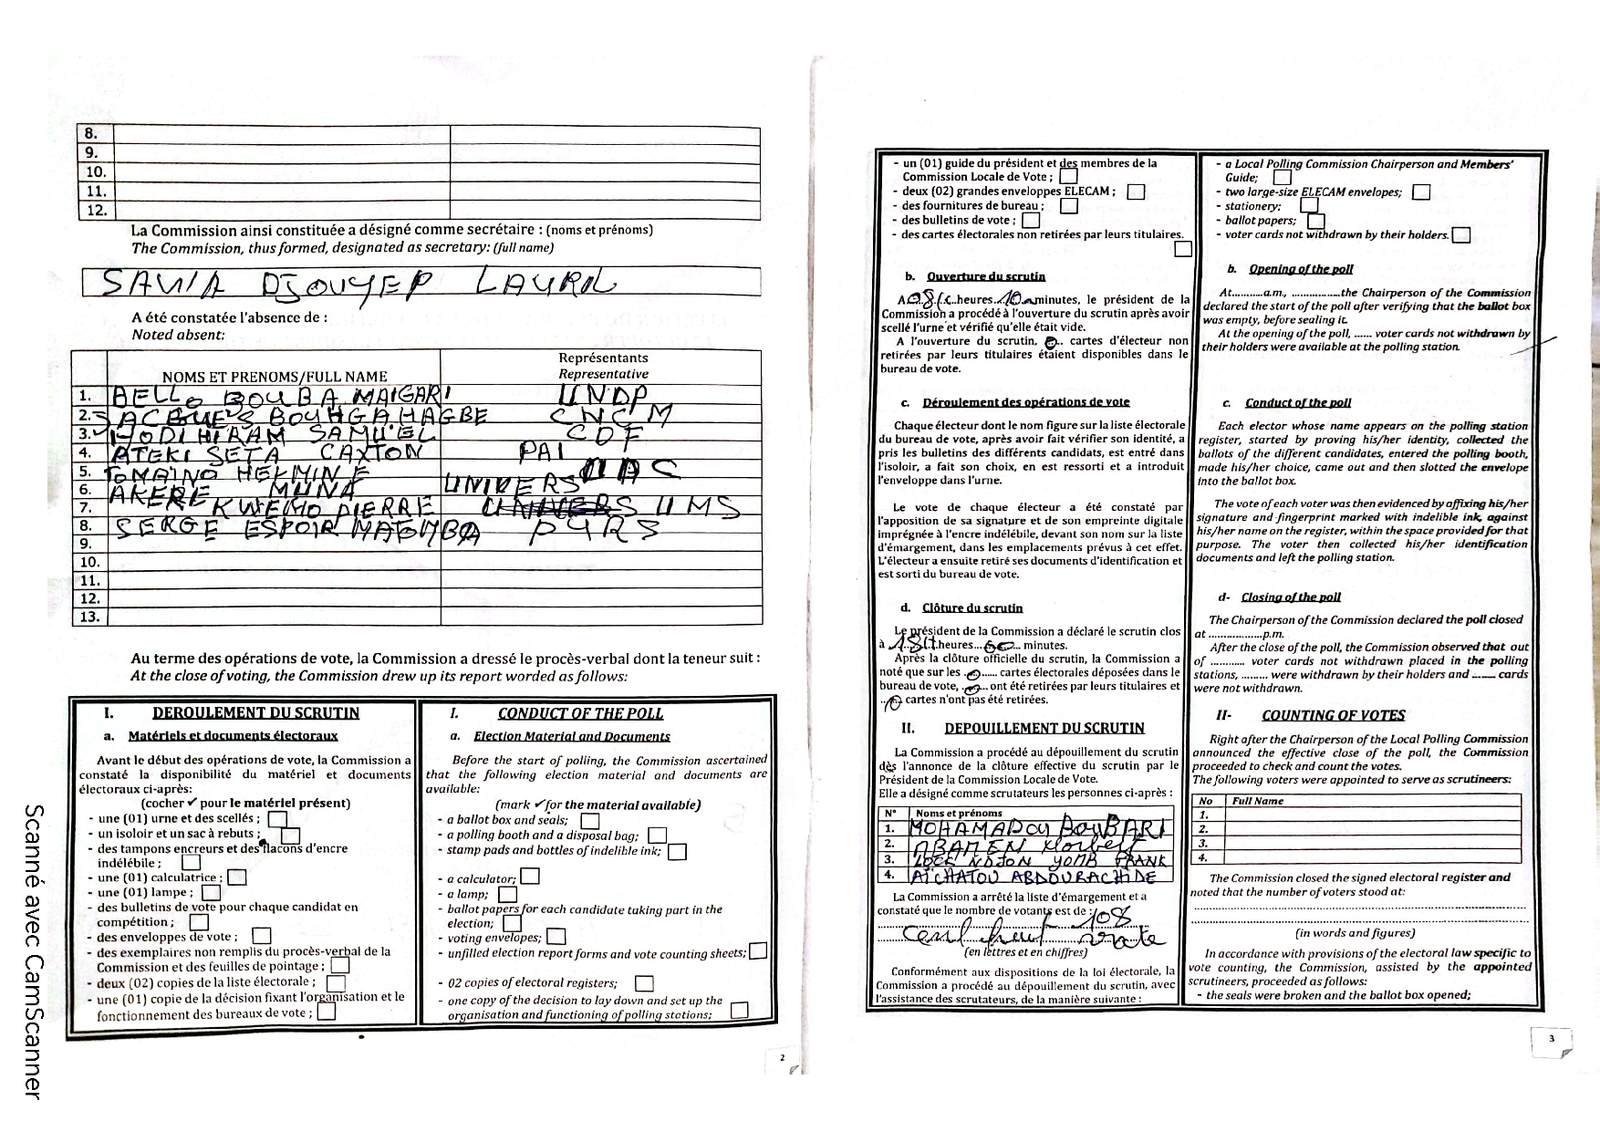 8.
9.
10.
11.
12.
La Commission ainsi constituée a désigné comme secrétaire : (noms et prénoms)
The Commission, thus formed, designated as secretary: (full name)
SAVIA DJOUYEP LAURIL
A été constatée l'absence de :
Noted absent:
NOMS ET PRENOMS/FULL NAME
Représentants
Representative
1. BELLO BOUBA MAIGARI UNDP
2. JACQUES BOUHGA HAGBE CNCM
3. IYODI HIRAM SAMUEL CDF
4. ATEKI SETA CAXTON PAL
5. TOMAINO HELMINE
6. AKERE MUNA UNIVERS
7. KWEMO PIERRE UMS
8. SERGE ESPOIR MATOMBA PURS
9.
10.
11.
12.
13.
Au terme des opérations de vote, la Commission a dressé le procès-verbal dont la teneur suit :
At the close of voting, the Commission drew up its report worded as follows:
I. DEROULEMENT DU SCRUTIN
a. Matériels et documents électoraux
Avant le début des opérations de vote, la Commission a
constaté la disponibilité du matériel et documents
électoraux ci-après:
(cocher ✓ pour le matériel présent)
- une (01) urne et des scellés ;
- un isoloir et un sac à rebuts ;
- des tampons encreurs et des flacons d'encre
indélébile ;
- une (01) calculatrice ;
- une (01) lampe ;
- des bulletins de vote pour chaque candidat en
compétition ;
- des enveloppes de vote ;
- des exemplaires non remplis du procès-verbal de la
Commission et des feuilles de pointage ;
- deux (02) copies de la liste électorale ;
- une (01) copie de la décision fixant l'organisation et le
fonctionnement des bureaux de vote ;
I. CONDUCT OF THE POLL
a. Election Material and Documents
Before the start of polling, the Commission ascertained
that the following election material and documents are
available:
(mark ✓ for the material available)
- a ballot box and seals;
- a polling booth and a disposal bag;
- stamp pads and bottles of indelible ink;
- a calculator;
- a lamp;
- ballot papers for each candidate taking part in the
election;
- voting envelopes;
- unfilled election report forms and vote counting sheets;
- 02 copies of electoral registers;
- one copy of the decision to lay down and set up the
organisation and functioning of polling stations;
2
- un (01) guide du président et des membres de la
Commission Locale de Vote ;
- deux (02) grandes enveloppes ELECAM ;
- des fournitures de bureau ;
- des bulletins de vote ;
- des cartes électorales non retirées par leurs titulaires.
b. Ouverture du scrutin
A 08 heures 10 minutes, le président de la
Commission a procédé à l'ouverture du scrutin après avoir
scellé l'urne et vérifié qu'elle était vide.
A l'ouverture du scrutin, 0 cartes d'électeur non
retirées par leurs titulaires étaient disponibles dans le
bureau de vote.
c. Déroulement des opérations de vote
Chaque électeur dont le nom figure sur la liste électorale
du bureau de vote, après avoir fait vérifier son identité, a
pris les bulletins des différents candidats, est entré dans
l'isoloir, a fait son choix, en est ressorti et a introduit
l'enveloppe dans l'urne.
Le vote de chaque électeur a été constaté par
l'apposition de sa signature et de son empreinte digitale
imprégnée à l'encre indélébile, devant son nom sur la liste
d'émargement, dans les emplacements prévus à cet effet.
L'électeur a ensuite retiré ses documents d'identification et
est sorti du bureau de vote.
d. Clôture du scrutin
Le président de la Commission a déclaré le scrutin clos
à 18H heures 00 minutes.
Après la clôture officielle du scrutin, la Commission a
noté que sur les 0 cartes électorales déposées dans le
bureau de vote, 0 ont été retirées par leurs titulaires et
0 cartes n'ont pas été retirées.
II. DEPOUILLEMENT DU SCRUTIN
La Commission a procédé au dépouillement du scrutin
dès l'annonce de la clôture effective du scrutin par le
Président de la Commission Locale de Vote.
Elle a désigné comme scrutateurs les personnes ci-après :
N° Noms et prénoms
1. MOHAMADOU BOUBARI
2. ABAMEN Norbert
3. LOGE NDJON YOMB FRANK
4. AICHATOU ABDOURACHIDE
La Commission a arrêté la liste d'émargement et a
constaté que le nombre de votants est de : 108
cent huit vote
(en lettres et en chiffres)
Conformément aux dispositions de la loi électorale, la
Commission a procédé au dépouillement du scrutin, avec
l'assistance des scrutateurs, de la manière suivante :
- a Local Polling Commission Chairperson and Members'
Guide;
- two large-size ELECAM envelopes;
- stationery;
- ballot papers;
- voter cards not withdrawn by their holders.
b. Opening of the poll
At..........a.m., ...............the Chairperson of the Commission
declared the start of the poll after verifying that the ballot box
was empty, before sealing it.
At the opening of the poll, ...... voter cards not withdrawn by
their holders were available at the polling station.
c. Conduct of the poll
Each elector whose name appears on the polling station
register, started by proving his/her identity, collected the
ballots of the different candidates, entered the polling booth,
made his/her choice, came out and then slotted the envelope
into the ballot box.
The vote of each voter was then evidenced by affixing his/her
signature and fingerprint marked with indelible ink, against
his/her name on the register, within the space provided for that
purpose. The voter then collected his/her identification
documents and left the polling station.
d- Closing of the poll
The Chairperson of the Commission declared the poll closed
at ..................p.m.
After the close of the poll, the Commission observed that out
of ............ voter cards not withdrawn placed in the polling
stations, ......... were withdrawn by their holders and ........ cards
were not withdrawn.
II- COUNTING OF VOTES
Right after the Chairperson of the Local Polling Commission
announced the effective close of the poll, the Commission
proceeded to check and count the votes.
The following voters were appointed to serve as scrutineers:
No Full Name
1.
2.
3.
4.
The Commission closed the signed electoral register and
noted that the number of voters stood at:
(in words and figures)
In accordance with provisions of the electoral law specific to
vote counting, the Commission, assisted by the appointed
scrutineers, proceeded as follows:
- the seals were broken and the ballot box opened;
3
Scanné avec CamScanner